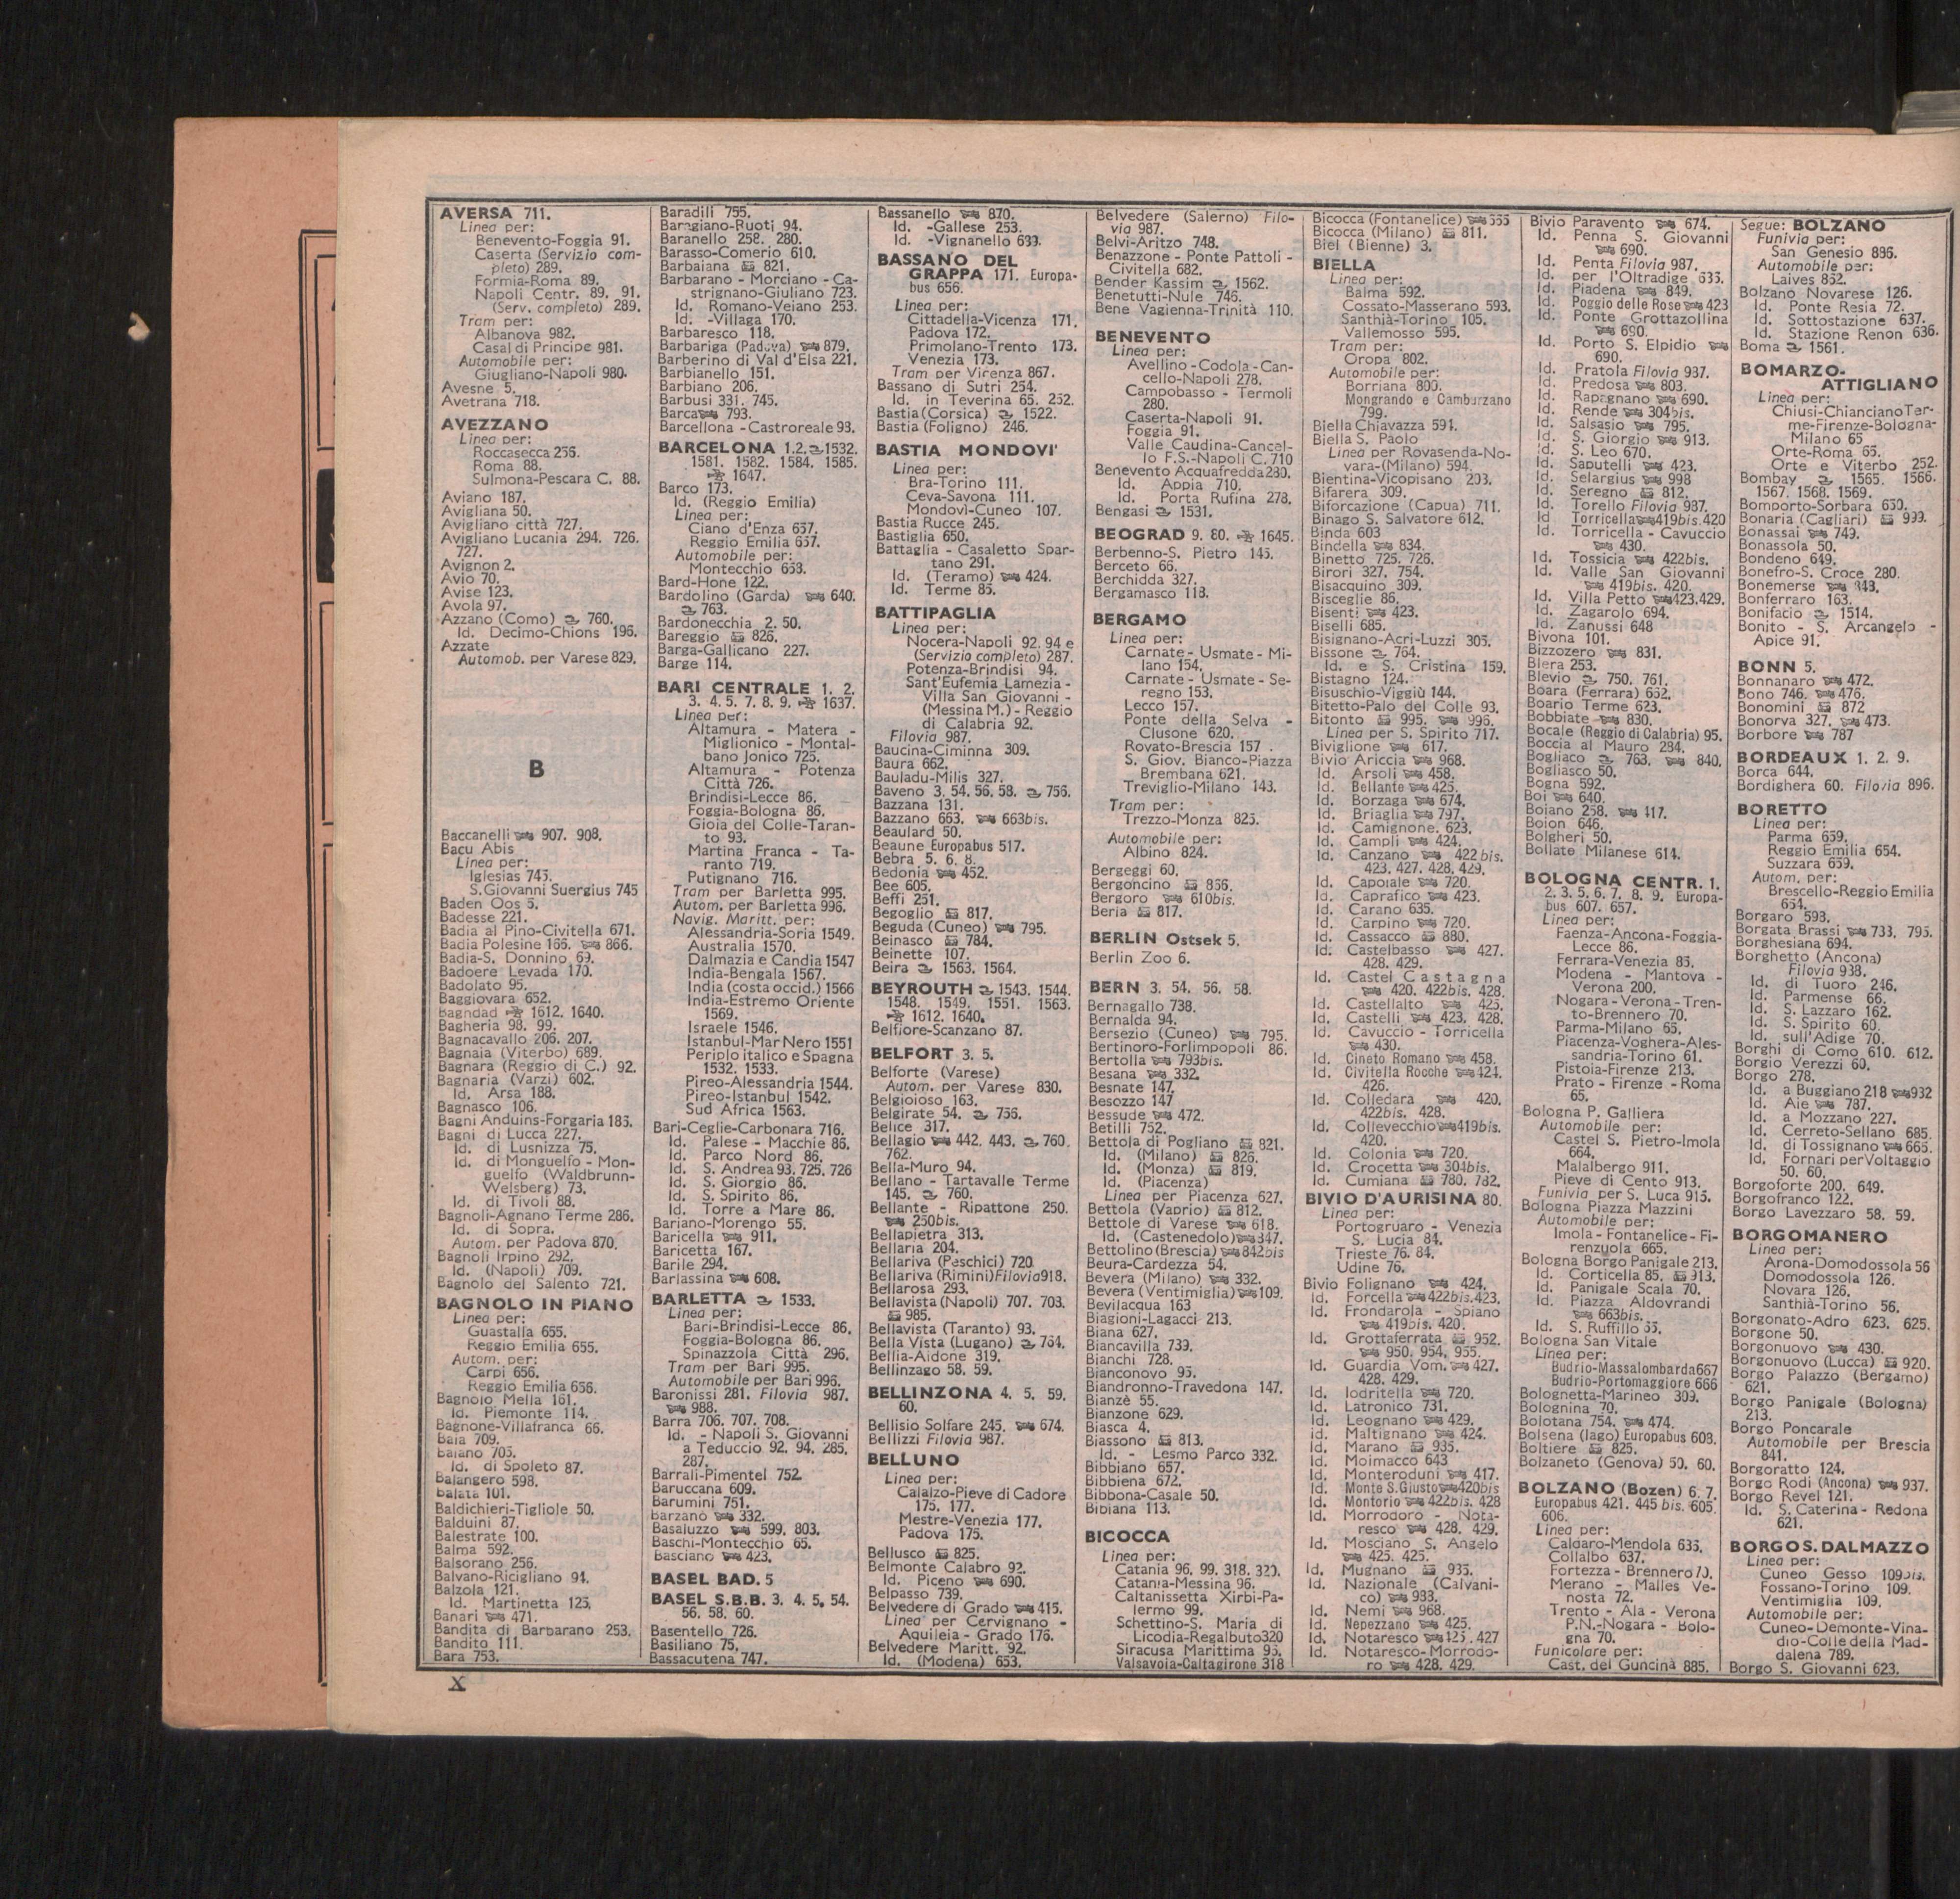 AVERSA 711.
Linea per:
Benevento-Foggia 91.
Caserta (Servizio com-
pleto) 289.
Formia-Roma 89.
Napoli Centr. 89. 91.
(Serv. completo) 289.
Tram per:
Albanova 982.
Casal di Principe 981.
Automobile per:
Giugliano-Napoli 980.
Avesne 5.
Avetrana 718.
AVEZZANO
Linea per:
Roccasecca 256.
Roma 88.
Sulmona-Pescara C. 88.
Aviano 187.
Avigliana 50.
Avigliano città 727.
Avigliano Lucania 294. 726.
727.
Avignon 2.
Avio 70.
Avise 123.
Avola 97.
Azzano (Como) 760.
Id. Decimo-Chions 196.
Azzate
Automob. per Varese 829.
B
Baccanelli 907. 908.
Bacu Abis
Linea per:
Iglesias 745.
S.Giovanni Suergius 745
Baden Oos 5.
Badesse 221.
Badia al Pino-Civitella 671.
Badia Polesine 166. 866.
Badia-S. Donnino 69.
Badoere Levada 170.
Badolato 95.
Baggiovara 652.
Baghdad 1612. 1640.
Bagheria 98. 99.
Bagnacavallo 206. 207.
Bagnaia (Viterbo) 689.
Bagnara (Reggio di C.) 92.
Bagnaria (Varzi) 602.
Id. Arsa 188.
Bagnasco 106.
Bagni Anduins-Forgaria 185.
Bagni di Lucca 227.
Id. di Lusnizza 75.
Id. di Monguelfo - Mon-
guelfo (Waldbrunn-
Welsberg) 73.
Id. di Tivoli 88.
Bagnoli-Agnano Terme 286.
Id. di Sopra.
Autom. per Padova 870.
Bagnoli Irpino 292.
Id. (Napoli) 709.
Bagnolo del Salento 721.
BAGNOLO IN PIANO
Linea per:
Guastalla 655.
Reggio Emilia 655.
Autom. per:
Carpi 656.
Reggio Emilia 656.
Bagnolo Mella 161.
Id. Piemonte 114.
Bagnone-Villafranca 66.
Baia 709.
Baiano 705.
Id. di Spoleto 87.
Balangero 598.
Balata 101.
Baldichieri-Tigliole 50.
Balduini 87.
Balestrate 100.
Balma 592.
Balsorano 256.
Balvano-Ricigliano 94.
Balzola 121.
Id. Martinetta 125.
Banari 471.
Bandita di Barbarano 253.
Bandito 111.
Bara 753.
Baradili 755.
Baragiano-Ruoti 94.
Baranello 258. 280.
Barasso-Comerio 610.
Barbaiana 821.
Barbarano - Morciano - Ca-
strignano-Giuliano 723.
Id. Romano-Veiano 253.
Id. -Villaga 170.
Barbaresco 118.
Barbariga (Padova) 879.
Barberino di Val d'Elsa 221.
Barbianello 151.
Barbiano 206.
Barbusi 331. 745.
Barca 793.
Barcellona - Castroreale 98.
BARCELONA 1.2. 1532.
1581. 1582. 1584. 1585.
1647.
Barco 173.
Id. (Reggio Emilia)
Linea per:
Ciano d'Enza 657.
Reggio Emilia 657.
Automobile per:
Montecchio 658.
Bard-Hone 122.
Bardolino (Garda) 640.
763.
Bardonecchia 2. 50.
Bareggio 826.
Barga-Gallicano 227.
Barge 114.
BARI CENTRALE 1. 2.
3. 4. 5. 7. 8. 9. 1637.
Linea per:
Altamura - Matera -
Miglionico - Montal-
bano Jonico 725.
Altamura - Potenza
Città 726.
Brindisi-Lecce 86.
Foggia-Bologna 86.
Gioia del Colle-Taran-
to 93.
Martina Franca - Ta-
ranto 719.
Putignano 716.
Tram per Barletta 995.
Autom. per Barletta 996.
Navig. Maritt. per:
Alessandria-Soria 1549.
Australia 1570.
Dalmazia e Candia 1547
India-Bengala 1567.
India (costa occid.) 1566
India-Estremo Oriente
1569.
Israele 1546.
Istanbul-Mar Nero 1551
Periplo italico e Spagna
1532. 1533.
Pireo-Alessandria 1544.
Pireo-Istanbul 1542.
Sud Africa 1563.
Bari-Ceglie-Carbonara 716.
Id. Palese - Macchie 86.
Id. Parco Nord 86.
Id. S. Andrea 93. 725. 726
Id. S. Giorgio 86.
Id. S. Spirito 86.
Id. Torre a Mare 86.
Bariano-Morengo 55.
Baricella 911.
Baricetta 167.
Barile 294.
Barlassina 608.
BARLETTA 1533.
Linea per:
Bari-Brindisi-Lecce 86.
Foggia-Bologna 86.
Spinazzola Città 296.
Tram per Bari 995.
Automobile per Bari 996.
Baronissi 281. Filovia 987.
988.
Barra 706. 707. 708.
Id. - Napoli S. Giovanni
a Teduccio 92. 94. 285.
287.
Barrali-Pimentel 752.
Baruccana 609.
Barumini 751.
Barzanò 332.
Basaluzzo 599. 803.
Baschi-Montecchio 65.
Basciano 423.
BASEL BAD. 5
BASEL S.B.B. 3. 4. 5. 54.
56. 58. 60.
Basentello 726.
Basiliano 75.
Bassacutena 747.
Bassanello 870.
Id. -Gallese 253.
Id. -Vignanello 689.
BASSANO DEL
GRAPPA 171. Europa-
bus 656.
Linea per:
Cittadella-Vicenza 171.
Padova 172.
Primolano-Trento 173.
Venezia 173.
Tram per Vicenza 867.
Bassano di Sutri 254.
Id. in Teverina 65. 252.
Bastia (Corsica) 1522.
Bastia (Foligno) 246.
BASTIA MONDOVI'
Linea per:
Bra-Torino 111.
Ceva-Savona 111.
Mondovì-Cuneo 107.
Bastia Rucce 245.
Bastiglia 650.
Battaglia - Casaletto Spar-
tano 291.
Id. (Teramo) 424.
Id. Terme 85.
BATTIPAGLIA
Linea per:
Nocera-Napoli 92. 94 e
(Servizio completo) 287.
Potenza-Brindisi 94.
Sant'Eufemia Lamezia -
Villa San Giovanni -
(Messina M.) - Reggio
di Calabria 92.
Filovia 987.
Baucina-Ciminna 309.
Baura 662.
Bauladu-Milis 327.
Baveno 3. 54. 56. 58. 756.
Bazzana 131.
Bazzano 663. 663bis.
Beaulard 50.
Beaune Europabus 517.
Bebra 5. 6. 8.
Bedonia 452.
Bee 605.
Beffi 251.
Begoglio 817.
Beguda (Cuneo) 795.
Beinasco 784.
Beinette 107.
Beira 1563. 1564.
BEYROUTH 1543. 1544.
1548. 1549. 1551. 1563.
1612. 1640.
Belfiore-Scanzano 87.
BELFORT 3. 5.
Belforte (Varese)
Autom. per Varese 830.
Belgioioso 163.
Belgirate 54. 756.
Belice 317.
Bellagio 442. 443. 760.
762.
Bella-Muro 94.
Bellano - Tartavalle Terme
145. 760.
Bellante - Ripattone 250.
250bis.
Bellapietra 313.
Bellaria 204.
Bellariva (Peschici) 720
Bellariva (Rimini) Filovia 918.
Bellarosa 293.
Bellavista (Napoli) 707. 708.
985.
Bellavista (Taranto) 93.
Bella Vista (Lugano) 764.
Bellia-Aidone 319.
Bellinzago 58. 59.
BELLINZONA 4. 5. 59.
60.
Bellisio Solfare 245. 674.
Bellizzi Filovia 987.
BELLUNO
Linea per:
Calalzo-Pieve di Cadore
175. 177.
Mestre-Venezia 177.
Padova 175.
Bellusco 825.
Belmonte Calabro 92.
Id. Piceno 690.
Belpasso 739.
Belvedere di Grado 415.
Linea per Cervignano -
Aquileia - Grado 176.
Belvedere Maritt. 92.
Id. (Modena) 653.
Belvedere (Salerno) Filo-
via 987.
Belvì-Aritzo 748.
Benazzone - Ponte Pattoli -
Civitella 682.
Bender Kassim 1562.
Benetutti-Nule 746.
Bene Vagienna-Trinità 110.
BENEVENTO
Linea per:
Avellino - Codola - Can-
cello-Napoli 278.
Campobasso - Termoli
280.
Caserta-Napoli 91.
Foggia 91.
Valle Caudina-Cancel-
lo F.S.-Napoli C. 710
Benevento Acquafredda 280.
Id. Appia 710.
Id. Porta Rufina 278.
Bengasi 1531.
BEOGRAD 9. 80. 1645.
Berbenno-S. Pietro 145.
Berceto 66.
Berchidda 327.
Bergamasco 118.
BERGAMO
Linea per:
Carnate - Usmate - Mi-
lano 154.
Carnate - Usmate - Se-
regno 153.
Lecco 157.
Ponte della Selva -
Clusone 620.
Rovato-Brescia 157.
S. Giov. Bianco-Piazza
Brembana 621.
Treviglio-Milano 143.
Tram per:
Trezzo-Monza 825.
Automobile per:
Albino 824.
Bergeggi 60.
Bergoncino 856.
Bergoro 610bis.
Beria 817.
BERLIN Ostsek 5.
Berlin Zoo 6.
BERN 3. 54. 56. 58.
Bernagallo 738.
Bernalda 94.
Bersezio (Cuneo) 795.
Bertinoro-Forlimpopoli 86.
Bertolla 793bis.
Besana 332.
Besnate 147.
Besozzo 147
Bessude 472.
Betilli 752.
Bettola di Pogliano 821.
Id. (Milano) 826.
Id. (Monza) 819.
Id. (Piacenza)
Linea per Piacenza 627.
Bettola (Vaprio) 812.
Bettole di Varese 618.
Id. (Castenedolo) 847.
Bettolino (Brescia) 842bis
Beura-Cardezza 54.
Bevera (Milano) 332.
Bevera (Ventimiglia) 109.
Bevilacqua 163
Biagioni-Lagacci 213.
Biana 627.
Biancavilla 739.
Bianchi 728.
Bianconovo 95.
Biandronno-Travedona 147.
Bianzè 55.
Bianzone 629.
Biasca 4.
Biassono 813.
Id. - Lesmo Parco 332.
Bibbiano 657.
Bibbiena 672.
Bibbona-Casale 50.
Bibiana 113.
BICOCCA
Linea per:
Catania 96. 99. 318. 320.
Catania-Messina 96.
Caltanissetta Xirbi-Pa-
lermo 99.
Schettino-S. Maria di
Licodia-Regalbuto 320
Siracusa Marittima 95.
Valsavoia-Caltagirone 318
Bicocca (Fontanelice) 665
Bicocca (Milano) 811.
Biel (Bienne) 3.
BIELLA
Linea per:
Balma 592.
Cossato-Masserano 593.
Santhià-Torino 105.
Vallemosso 595.
Tram per:
Oropa 802.
Automobile per:
Borriana 800.
Mongrando e Camburzano
799.
Biella Chiavazza 591.
Biella S. Paolo
Linea per Rovasenda-No-
vara-(Milano) 594.
Bientina-Vicopisano 203.
Bifarera 309.
Biforcazione (Capua) 711.
Binago S. Salvatore 612.
Binda 603
Bindella 834.
Binetto 725. 726.
Birori 327. 754.
Bisacquino 309.
Bisceglie 86.
Bisenti 423.
Biselli 685.
Bisignano-Acri-Luzzi 305.
Bissone 764.
Id. e S. Cristina 159.
Bistagno 124.
Bisuschio-Viggiù 144.
Bitetto-Palo del Colle 93.
Bitonto 995. 996.
Linea per S. Spirito 717.
Biviglione 617.
Bivio Ariccia 968.
Id. Arsoli 458.
Id. Bellante 425.
Id. Borzaga 674.
Id. Briaglia 797.
Id. Camignone. 623.
Id. Campli 424.
Id. Canzano 422bis.
423. 427. 428. 429.
Id. Capoiale 720.
Id. Caprafico 423.
Id. Carano 635.
Id. Carpino 720.
Id. Cassacco 880.
Id. Castelbasso 427.
428. 429.
Id. Castel Castagna
420. 422bis. 428.
Id. Castellalto 425.
Id. Castelli 423. 428.
Id. Cavuccio - Torricella
430.
Id. Cineto Romano 458.
Id. Civitella Rocche 424.
426.
Id. Colledara 420.
422bis. 428.
Id. Collevecchio 419bis.
420.
Id. Colonia 720.
Id. Crocetta 304bis.
Id. Cumiana 780. 782.
BIVIO D'AURISINA 80.
Linea per:
Portogruaro - Venezia
S. Lucia 84.
Trieste 76. 84.
Udine 76.
Bivio Folignano 424.
Id. Forcella 422bis. 423.
Id. Frondarola - Spiano
419bis. 420.
Id. Grottaferrata 952.
950. 954. 955.
Id. Guardia Vom. 427.
428. 429.
Id. Iodritella 720.
Id. Latronico 731.
Id. Leognano 429.
Id. Maltignano 424.
Id. Marano 935.
Id. Moimacco 643
Id. Monteroduni 417.
Id. Monte S.Giusto 420bis
Id. Montorio 422bis. 428
Id. Morrodoro - Nota-
resco 428. 429.
Id. Mosciano S. Angelo
425. 425.
Id. Mugnano 935.
Id. Nazionale (Calvani-
co) 933.
Id. Nemi 968.
Id. Nepezzano 425.
Id. Notaresco 425. 427
Id. Notaresco-Morrodo-
ro 428. 429.
Bivio Paravento 674.
Id. Penna S. Giovanni
690.
Id. Penta Filovia 987.
Id. per l'Oltradige 635.
Id. Piadena 849.
Id. Poggio delle Rose 423
Id. Ponte Grottazzolina
690.
Id. Porto S. Elpidio
690.
Id. Pratola Filovia 937.
Id. Predosa 803.
Id. Rapagnano 690.
Id. Rende 304bis.
Id. Salsasio 795.
Id. S. Giorgio 913.
Id. S. Leo 670.
Id. Saputelli 423.
Id. Selargius 998
Id. Seregno 812.
Id. Torello Filovia 987.
Id. Torricella 419bis. 420
Id. Torricella - Cavuccio
430.
Id. Tossicia 422bis.
Id. Valle San Giovanni
419bis. 420.
Id. Villa Petto 423. 429.
Id. Zagarolo 694.
Id. Zanussi 648
Bivona 101.
Bizzozero 831.
Blera 253.
Blevio 750. 761.
Boara (Ferrara) 662.
Boario Terme 623.
Bobbiate 830.
Bocale (Reggio di Calabria) 95.
Boccia al Mauro 284.
Bogliaco 763. 840.
Bogliasco 50.
Bogna 592.
Boi 640.
Boiano 258. 417.
Boion 646.
Bolgheri 50.
Bollate Milanese 614.
BOLOGNA CENTR. 1.
2. 3. 5. 6. 7. 8. 9. Europa-
bus 607. 657.
Linea per:
Faenza-Ancona-Foggia-
Lecce 86.
Ferrara-Venezia 85.
Modena - Mantova -
Verona 200.
Nogara - Verona - Tren-
to-Brennero 70.
Parma-Milano 65.
Piacenza-Voghera-Ales-
sandria-Torino 61.
Pistoia-Firenze 213.
Prato - Firenze - Roma
65.
Bologna P. Galliera
Automobile per:
Castel S. Pietro-Imola
664.
Malalbergo 911.
Pieve di Cento 913.
Funivia per S. Luca 915.
Bologna Piazza Mazzini
Automobile per:
Imola - Fontanelice - Fi-
renzuola 665.
Bologna Borgo Panigale 213.
Id. Corticella 85. 913.
Id. Panigale Scala 70.
Id. Piazza Aldovrandi
663bis.
Id. S. Ruffillo 65.
Bologna San Vitale
Linea per:
Budrio-Massalombarda 667
Budrio-Portomaggiore 666
Bolognetta-Marineo 309.
Bolognina 70.
Bolotana 754. 474.
Bolsena (lago) Europabus 608.
Boltiere 825.
Bolzaneto (Genova) 50. 60.
BOLZANO (Bozen) 6. 7.
Europabus 421. 445 bis. 605.
606.
Linea per:
Caldaro-Mendola 635.
Collalbo 637.
Fortezza - Brennero 70.
Merano - Malles Ve-
nosta 72.
Trento - Ala - Verona
P.N.-Nogara - Bolo-
gna 70.
Funicolare per:
Cast. del Guncinà 885.
Segue: BOLZANO
Funivia per:
San Genesio 886.
Automobile per:
Laives 882.
Bolzano Novarese 126.
Id. Ponte Resia 72.
Id. Sottostazione 637.
Id. Stazione Renon 636.
Boma 1561.
BOMARZO-
ATTIGLIANO
Linea per:
Chiusi-Chianciano Ter-
me-Firenze-Bologna-
Milano 65
Orte-Roma 65.
Orte e Viterbo 252.
Bombay 1565. 1566.
1567. 1568. 1569.
Bomporto-Sorbara 650.
Bonaria (Cagliari) 999.
Bonassai 749.
Bonassola 50.
Bondeno 649.
Bonefro-S. Croce 280.
Bonemerse 843.
Bonferraro 163.
Bonifacio 1514.
Bonito - S. Arcangelo -
Apice 91.
BONN 5.
Bonnanaro 472.
Bono 746. 476.
Bonomini 872
Bonorva 327. 473.
Borbore 787
BORDEAUX 1. 2. 9.
Borca 644.
Bordighera 60. Filovia 896.
BORETTO
Linea per:
Parma 659.
Reggio Emilia 654.
Suzzara 659.
Autom. per:
Brescello-Reggio Emilia
654.
Borgaro 593.
Borgata Brassi 733. 795.
Borghesiana 694.
Borghetto (Ancona)
Filovia 938.
Id. di Tuoro 246.
Id. Parmense 66.
Id. S. Lazzaro 162.
Id. S. Spirito 60.
Id. sull'Adige 70.
Borghi di Como 610. 612.
Borgio Verezzi 60.
Borgo 278.
Id. a Buggiano 218 932
Id. Aie 787.
Id. a Mozzano 227.
Id. Cerreto-Sellano 685.
Id. di Tossignano 665.
Id. Fornari per Voltaggio
50. 60.
Borgoforte 200. 649.
Borgofranco 122.
Borgo Lavezzaro 58. 59.
BORGOMANERO
Linea per:
Arona-Domodossola 56
Domodossola 126.
Novara 126.
Santhià-Torino 56.
Borgonato-Adro 623. 625.
Borgone 50.
Borgonuovo 430.
Borgonuovo (Lucca) 920.
Borgo Palazzo (Bergamo)
621.
Borgo Panigale (Bologna)
213.
Borgo Poncarale
Automobile per Brescia
841.
Borgoratto 124.
Borgo Rodi (Ancona) 937.
Borgo Revel 121.
Id. S. Caterina - Redona
621.
BORGO S. DALMAZZO
Linea per:
Cuneo Gesso 109bis.
Fossano-Torino 109.
Ventimiglia 109.
Automobile per:
Cuneo-Demonte-Vina-
dio-Colle della Mad-
dalena 789.
Borgo S. Giovanni 623.
X